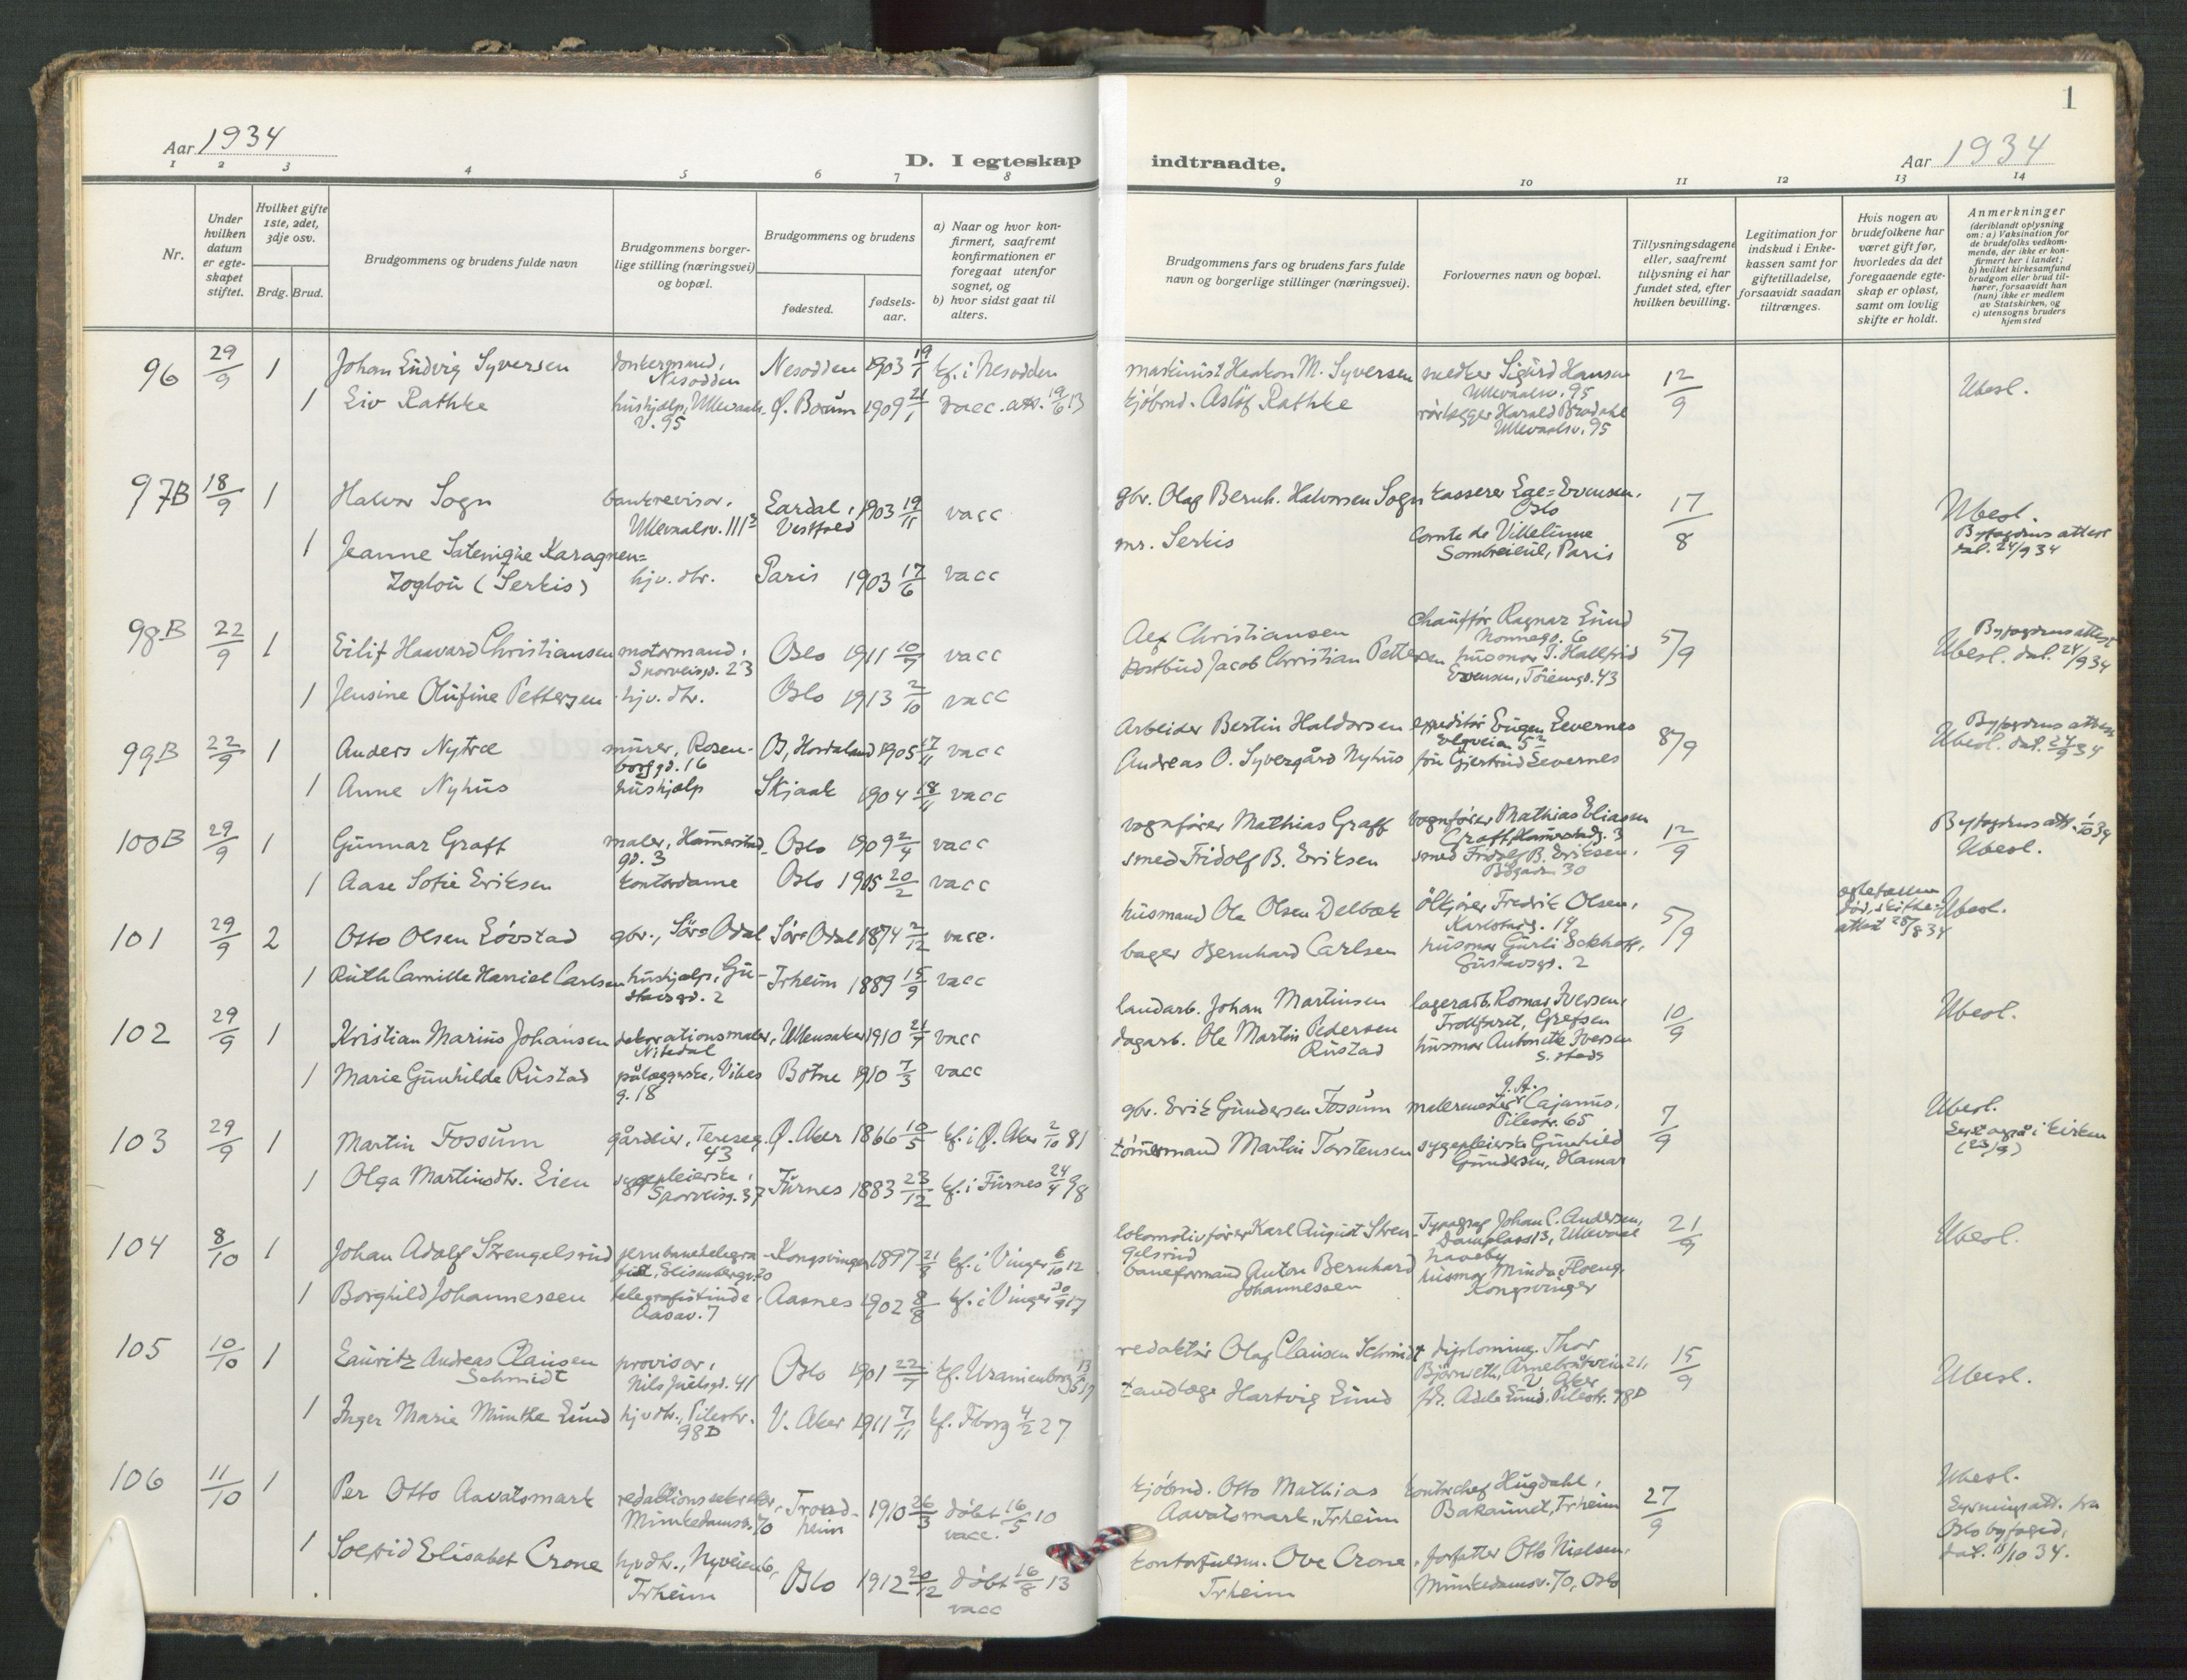 1
Aar 1934
D. I egteskap indtraadte.
Aar 1934
1 2 3 4 5 6 7 8 9 10 11 12 13 14
Nr.
Under hvilken datum er egteskapet stiftet.
Hvilket gifte 1ste, 2det, 3dje osv.
Brdg. Brud.
Brudgommens og brudens fulde navn
Brudgommens borgerlige stilling (næringsvei) og bopæl.
Brudgommens og brudens
fødested.
fødselsaar.
a) Naar og hvor konfirmert, saafremt konfirmationen er foregaat utenfor sognet, og
b) hvor sidst gaat til alters.
Brudgommens fars og brudens fars fulde navn og borgerlige stillinger (næringsvei).
Forlovernes navn og bopæl.
Tillysningsdagene eller, saafremt tillysning ei har fundet sted, efter hvilken bevilling.
Legitimation for indskud i Enkekassen samt for giftetilladelse, forsaavidt saadan tiltrænges.
Hvis nogen av brudefolkene har været gift før, hvorledes da det foregaaende egteskap er opløst, samt om lovlig skifte er holdt.
Anmerkninger
(deriblandt oplysning om: a) Vaksination for de brudefolks vedkommende, der ikke er konfirmert her i landet;
b) hvilket kirkesamfund brudgom eller brud tilhører, forsaavidt han (hun) ikke er medlem av Statskirken, og
c) utensogns bruders hjemsted
96 29/9 1 Johan Ludvig Syversen donkermand, Nesodden Nesodden 1903 19/1 kf. i Nesodden maskinist Haakon M. Syversen snedker Sigurd Hansen Ullevaalsv. 95 12/9 Ubesl.
1 Liv Rathke hushjelp, Ullevaalsv. 95 Ø. Bærum 1909 21/1 vacc. att. 19/6 13 kjøbmd. Asløf Rathke rørlegger Harald Brodahl Ullevaalsv. 95
97B 18/9 1 Halvor Sogn bankrevisor, Ullevaalsv. 111 Lardal, Vestfold 1903 19/11 vacc gbr. Olaf Bernh. Halvorsen Sogn kasserer Lae-Evensen, Oslo 17/8 Ubesl. Byfogdens attest dat. 24/9 34
1 Jeanne Satenighe Karagueu=Zoglou (Serkis) hjv. dtr. Paris 1903 17/6 vacc mr. Serkis Comte de Villelume Sombreieul, Paris
98B 22/9 1 Eilif Haavard Christiansen motormand, Sporveisg. 23 Oslo 1911 10/7 vacc Alf Christiansen chauffør Ragnar Lund Nonnegd. 6 5/9 Ubesl. Byfogdens attest dat. 24/9 34
1 Jensine Olufine Pettersen hjv. dtr. Oslo 1913 2/10 vacc postbud Jacob Christian Pettersen husmor J. Hallfrid Evensen, Tøiengd. 43
99B 22/9 1 Anders Nytræ murer, Rosenborggd. 16 Os, Hordaland 1905 17/11 vacc Arbeider Bertin Haldorsen expeditør Eugen Levernes Elgveien 5 8/9 Ubesl. Byfogdens attest dat. 24/9 34
1 Anne Nyhus hushjelp Skjaak 1904 18/11 vacc Andreas O. Syvergård Nyhus fru Gjertrud Levernes
100B 29/9 1 Gunnar Graff maler, Hammerstadgd. 3 Oslo 1909 2/4 vacc vognfører Mathias Graff vognfører Mathias Eliassen Graff, Hammerstadg. 3 12/9 Byfogdens att. 1/10 34 Ubesl.
1 Aase Sofie Eriksen kontordame Oslo 1905 20/2 vacc smed Fridolf B. Eriksen smed Fridolf B. Eriksen, Bogadn 30
101 29/9 2 Otto Olsen Løvstad gbr., Sør-Odal Sør-Odal 1874 2/12 vacc. husmand Ole Olsen Delbæk ølkjører Fredrik Olsen, Karlstadg. 19 5/9 egtefellen død, skifteattest 28/8 34 Ubesl.
1 Ruth Camille Harriet Carlsen hushjelp, Gustavsgd. 2 Trheim 1889 15/9 vacc bager Bernhard Carlsen husmor Gurli Eckhoff, Gustavsgd. 2
102 29/9 1 Kristian Marius Johansen dekorationsmaler, Nitedal Ullensaker 1910 21/7 vacc landarb. Johan Martinsen lagerarb. Romar Iversen, Trollfaret, Grefsen 10/9 Ubesl.
1 Marie Gunhilde Rustad pålæggerske, Vibesg. 18 Botne 1910 7/3 vacc dagarb. Ole Martin Pedersen Rustad husmor Antonette Iversen s. steds
103 29/9 1 Martin Fossum gårdeier, Tereseg. 43 Ø. Aker 1866 10/5 kf. i Ø. Aker 2/10 81 gbr. Erik Gundersen Fossum malermester J. A. Cajanus, Pilestr. 65 7/9 Ubesl. Lyst også i kirken (23/9)
1 Olga Martinsdtr. Lien sygepleierske, Sporveisg. 37 Furnes 1883 23/12 kf. i Furnes 24/4 98 tømmermand Martin Torstensen sygepleierske Gunhild Gundersen, Hamar
104 8/10 1 Johan Adolf Strengelsrud jernbanetelegrafist, Elisenbergv. 20 Kongsvinger 1897 21/8 kf. i Vinger 6/10 12 lokomotivfører Karl August Strengelsrud Typograf Johan C. Andersen, Damplass 13, Ullevaal haveby 21/9 Ubesl.
1 Borghild Johannessen telegrafistinde, Aasav. 7 Aasnes 1902 8/8 kf. i Vinger 30/9 17 baneformand Anton Bernhard Johannessen husmor Minda Floeng, Kongsvinger
105 10/10 1 Lauritz Andreas Clausen Schmidt provisor, Nils Juelsgd. 41 Oslo 1901 22/7 kf. Uranienborg redaktør Olaf Clausen Schmidt diploming. Thor Bjørneth, Arnebråtvein 21, V. Aker 15/9 Ubesl.
1 Inger Marie Munthe Lund hjv dtr., Pilestr. 98D V. Aker 1911 7/11 kf. Fborg 4/2 27 tandlæge Hartvig Lund frk. Adele Lund, Pilestr. 98D
106 11/10 1 Per Otto Aavatsmark redaktionssekretær, Munkedamsv. 70 Trondheim 1910 26/3 døbt 16/5 10 vacc. kjøbmd. Otto Mathias Aavatsmark, Trheim kontorchef Hugdahl, Bakaunet, Trheim 27/9 Ubesl. Lysningsatt. fra Oslo byfogd, dat. 11/10 34.
1 Solfrid Elisabet Crone hjv dtr., Nyveien 6, Trheim Oslo 1912 20/12 døbt 16/8 13 vacc kontorfuldm. Ove Crone, Trheim forfatter Otto Nielsen, Munkedamsv. 70, Oslo